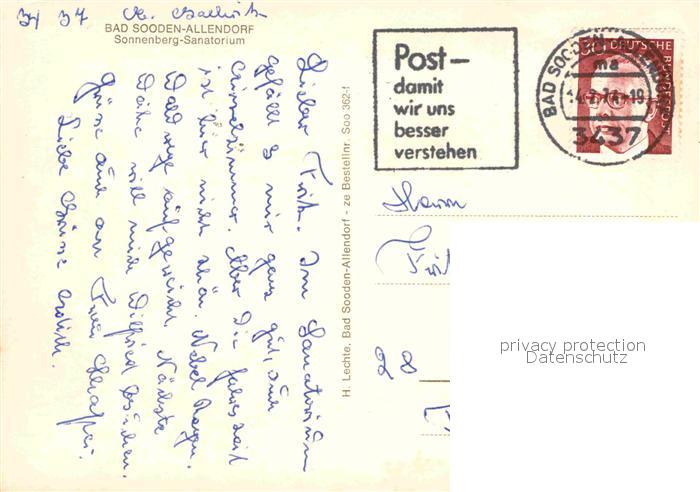 BAD SOODEN-ALLENDORF
Sonnenberg-Sanatorium
Lieber Fritz. Im Sanatorium
gefällt es mir ganz gut, auch
Einzelzimmer. Aber die Jahreszeit
ist hier nicht schön. Nebel Regen.
Wald wege aufgeweicht. Nächste
Woche will mich Wilfried besuchen.
Grüße auch an Frau
Liebe Grüsse
H. Lechte, Bad Sooden-Allendorf - ze Bestellnr. Soo 362-f
Post-
damit
wir uns
besser
verstehen
BAD SOODEN-ALLENDORF
ma
3437
DEUTSCHE BUNDESPOST
Herrn
28
privacy protection
Datenschutz